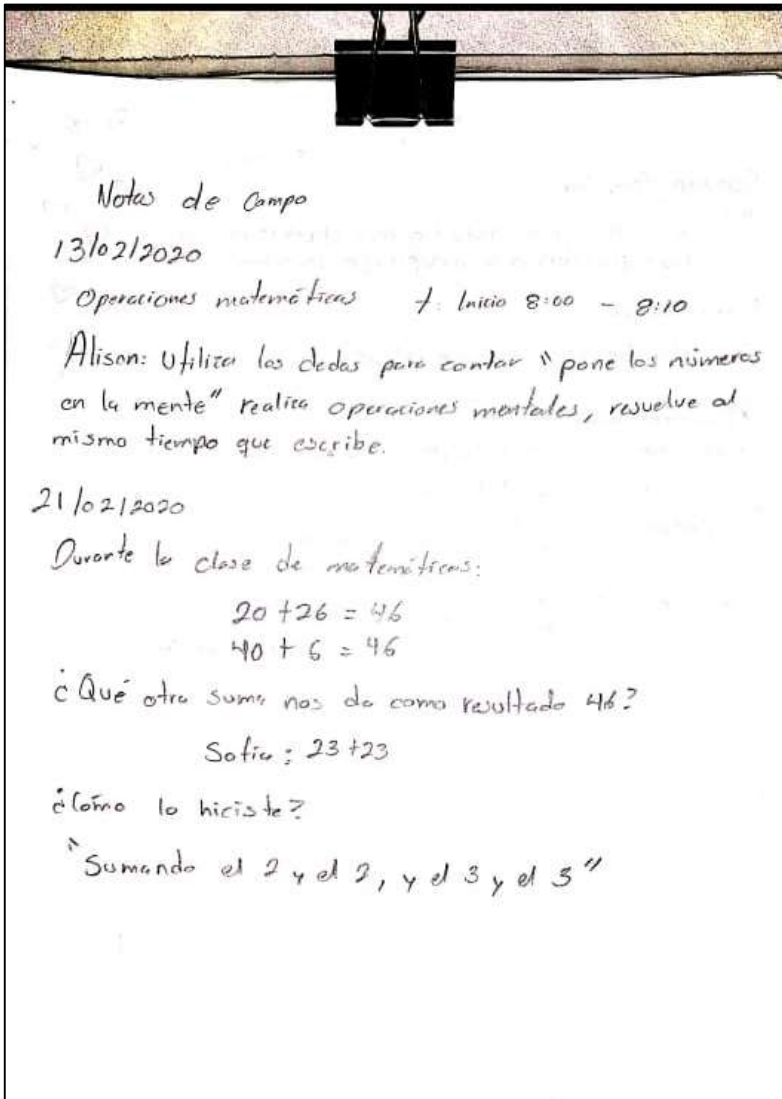 Notas de Campo
13/02/2020
Operaciones matemáticas t: Inicio 8:00 - 8:10
Alison: Utiliza los dedos para contar "pone los números
en la mente" realiza operaciones mentales, resuelve al
mismo tiempo que escribe.
21/02/2020
Durante la clase de matemáticas:
20 + 26 = 46
40 + 6 = 46
¿Qué otra suma nos da como resultado 46?
Sofia: 23 + 23
¿Cómo lo hiciste?
"Sumando el 2 y el 2, y el 3 y el 3"